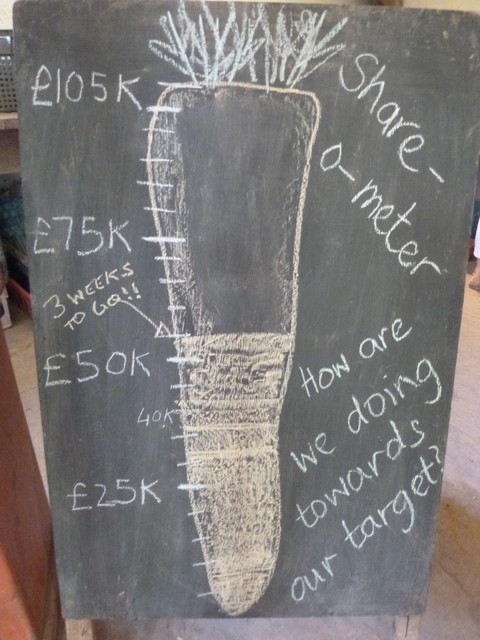 £105K
Share-
o-meter
£75K
3 WEEKS
TO GO!!
£50K
40K
£25K
How are
we doing
towards
our target?